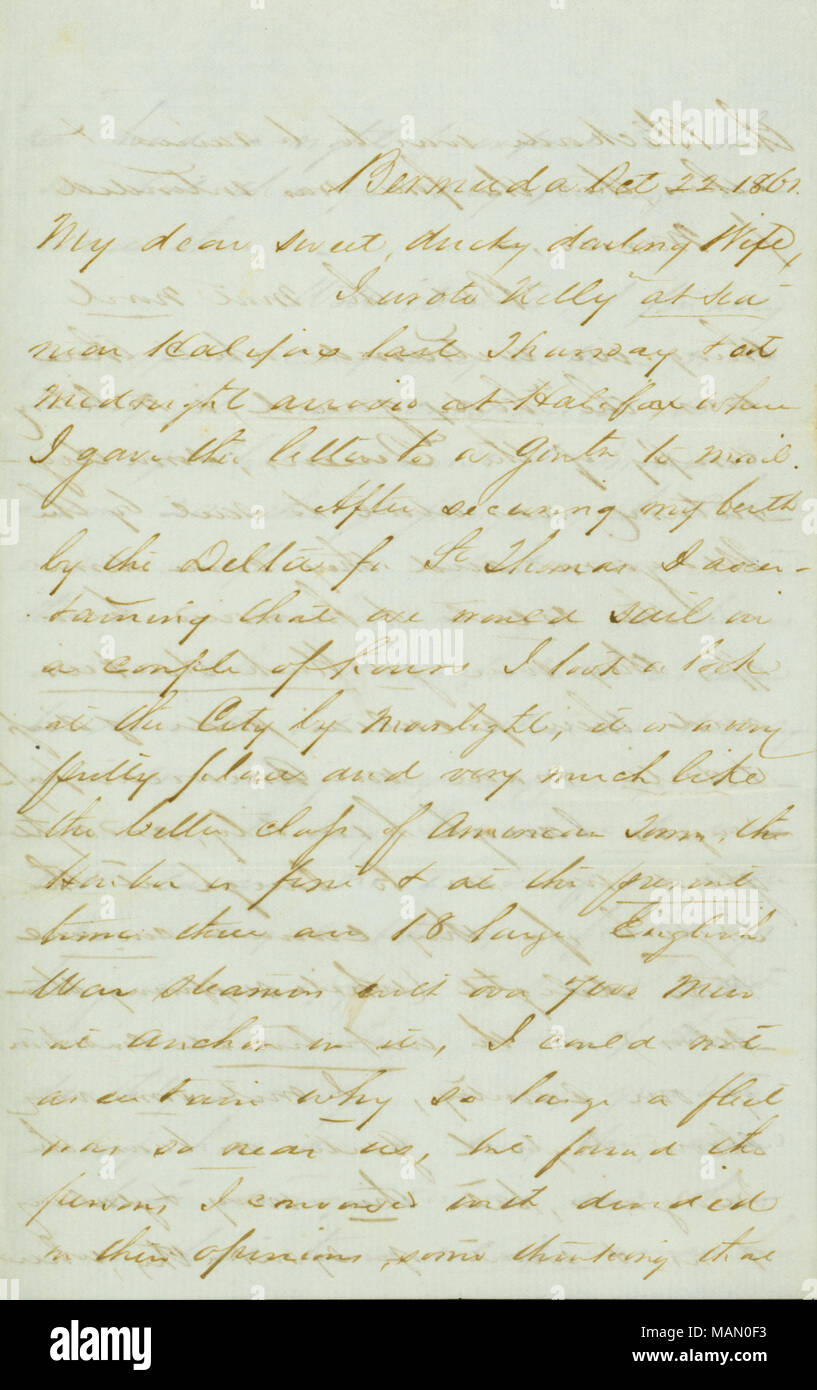 Bermuda Oct 22. 1861.
My dear sweet, ducky darling Wife,
I wrote Nelly "at sea"
near Halifax last Thursday & at
Midnight arrived at Halifax where
I gave the letter to a Gentn to mail.
After securing my berth
by the Delta for St Thomas & ascer-
taining that we would sail in
a couple of hours I took a look
at the City by Moonlight, it is a very
pretty place and very much like
the better class of American Towns, the
Harbor is fine & at the present
time there are 18 large English
War steamers with over 7000 Men
at anchor in it, I could not
ascertain why so large a fleet
was so near us, but found the
persons I conversed with divided
in their opinions, some thinking that
alamy
alamy
alamy
Image ID: MAN0F3
www.alamy.com